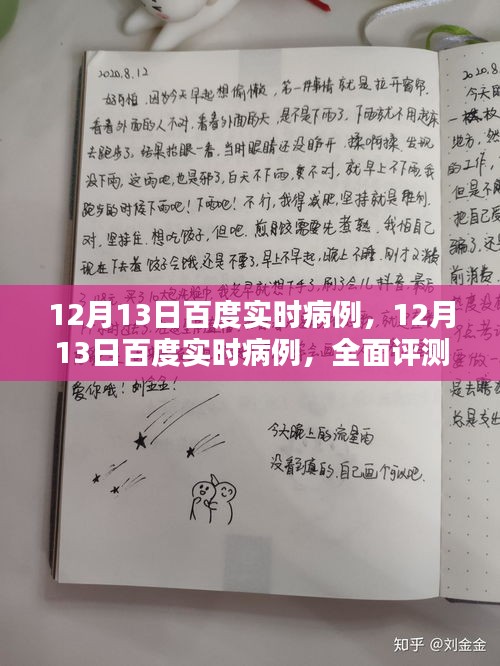 2020.8.12
好可怕，因为今天早起想偷懒，第一件事情就是拉开窗帘，
看看外面的人不对，看看外面的天，是不是下雨了，下雨就不用起床
去跑步了，结果抬眼一看，当时眼睛还没睁开，揉啊揉，发现
没下雨，这雨吧，也是邪了，白天不下雨，要不对，就早上不下雨，我
跑步的时候下雨吧！下雨吧！不行，我得减肥，坚持就是胜利，
对，坚持住，想吃饺子，但吧，煎饺需要先煮熟，我怕自己
现在下去煮饺子会饿，还是不要了，早上不早起，晚上不睡，刚才又消费
12月13日百度实时病例，12月
13日百度实时病例，全面评测
爱你哦！刘金金！
今天晚上的流星雨
没看到真的，自己画个可以吧.
2020.8
今天的
地方，然
的工作，
但是不
把自己
骗了，还
前消费，
知乎 @刘金金